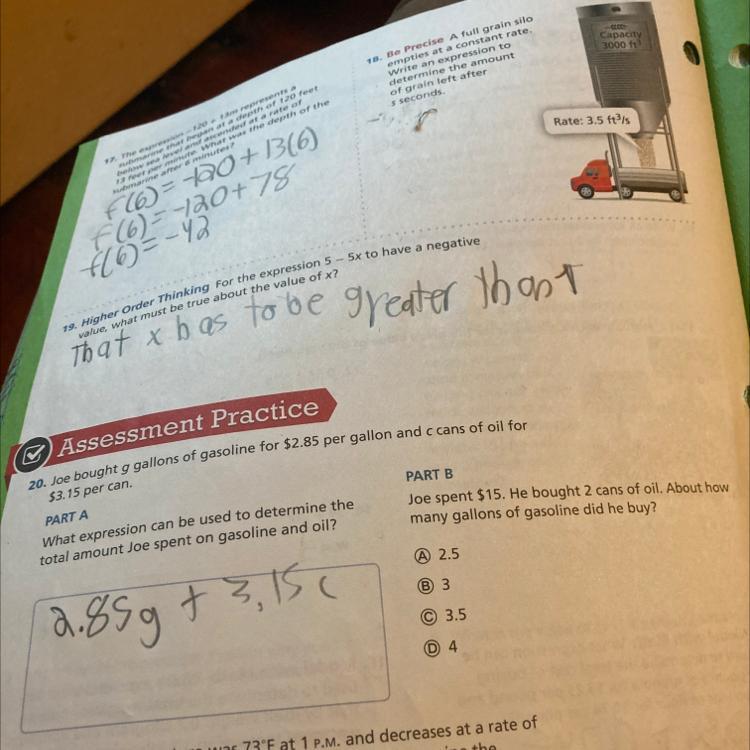 17. The expression −120 + 13m represents a
submarine that began at a depth of 120 feet
below sea level and ascended at a rate of
13 feet per minute. What was the depth of the
submarine after 6 minutes?
f(6) = -120 + 13(6)
f(6) = -120 + 78
f(6) = -42
18. Be Precise A full grain silo
empties at a constant rate.
Write an expression to
determine the amount
of grain left after
s seconds.
Capacity
3000 ft³
Rate: 3.5 ft³/s
19. Higher Order Thinking For the expression 5 − 5x to have a negative
value, what must be true about the value of x?
That x has to be greater than 1
Assessment Practice
20. Joe bought g gallons of gasoline for $2.85 per gallon and c cans of oil for
$3.15 per can.
PART A
What expression can be used to determine the
total amount Joe spent on gasoline and oil?
2.85g + 3.15c
PART B
Joe spent $15. He bought 2 cans of oil. About how
many gallons of gasoline did he buy?
A 2.5
B 3
C 3.5
D 4
73°F at 1 P.M. and decreases at a rate of
the